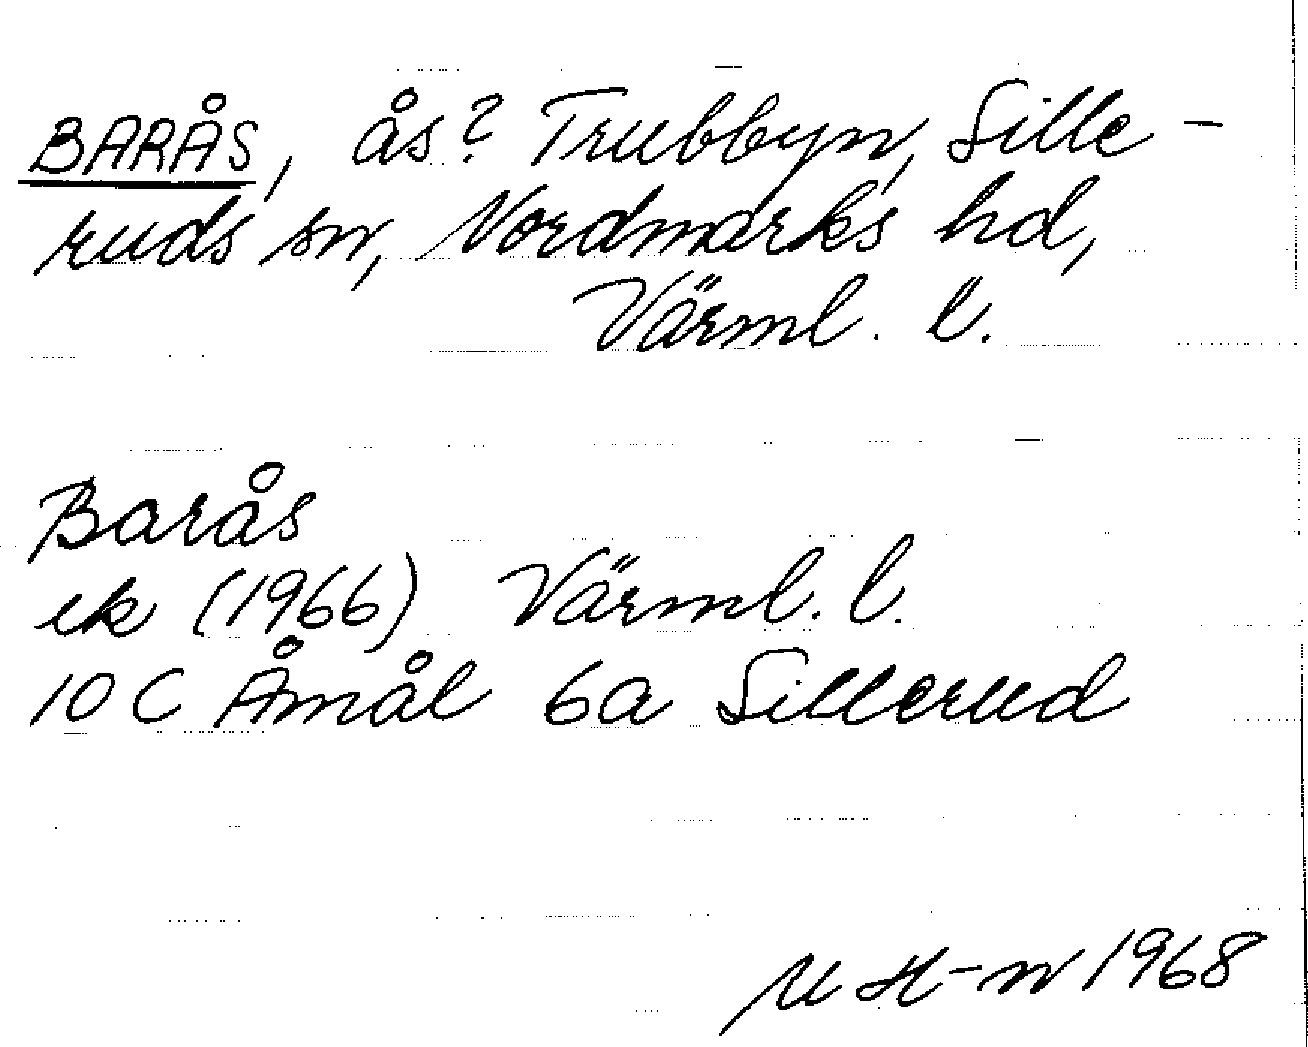 BARÅS, ås? Trubbyn, Sille-
ruds sn, Nordmarks hd,
Värml. l.
Barås
ek (1966) Värml. l.
10 C Åmål 6a Sillerud
M H-n 1968